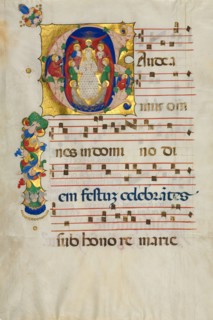 Audea
mus om
nes in domi no di
em festuz celebrātes
sub hono re marie